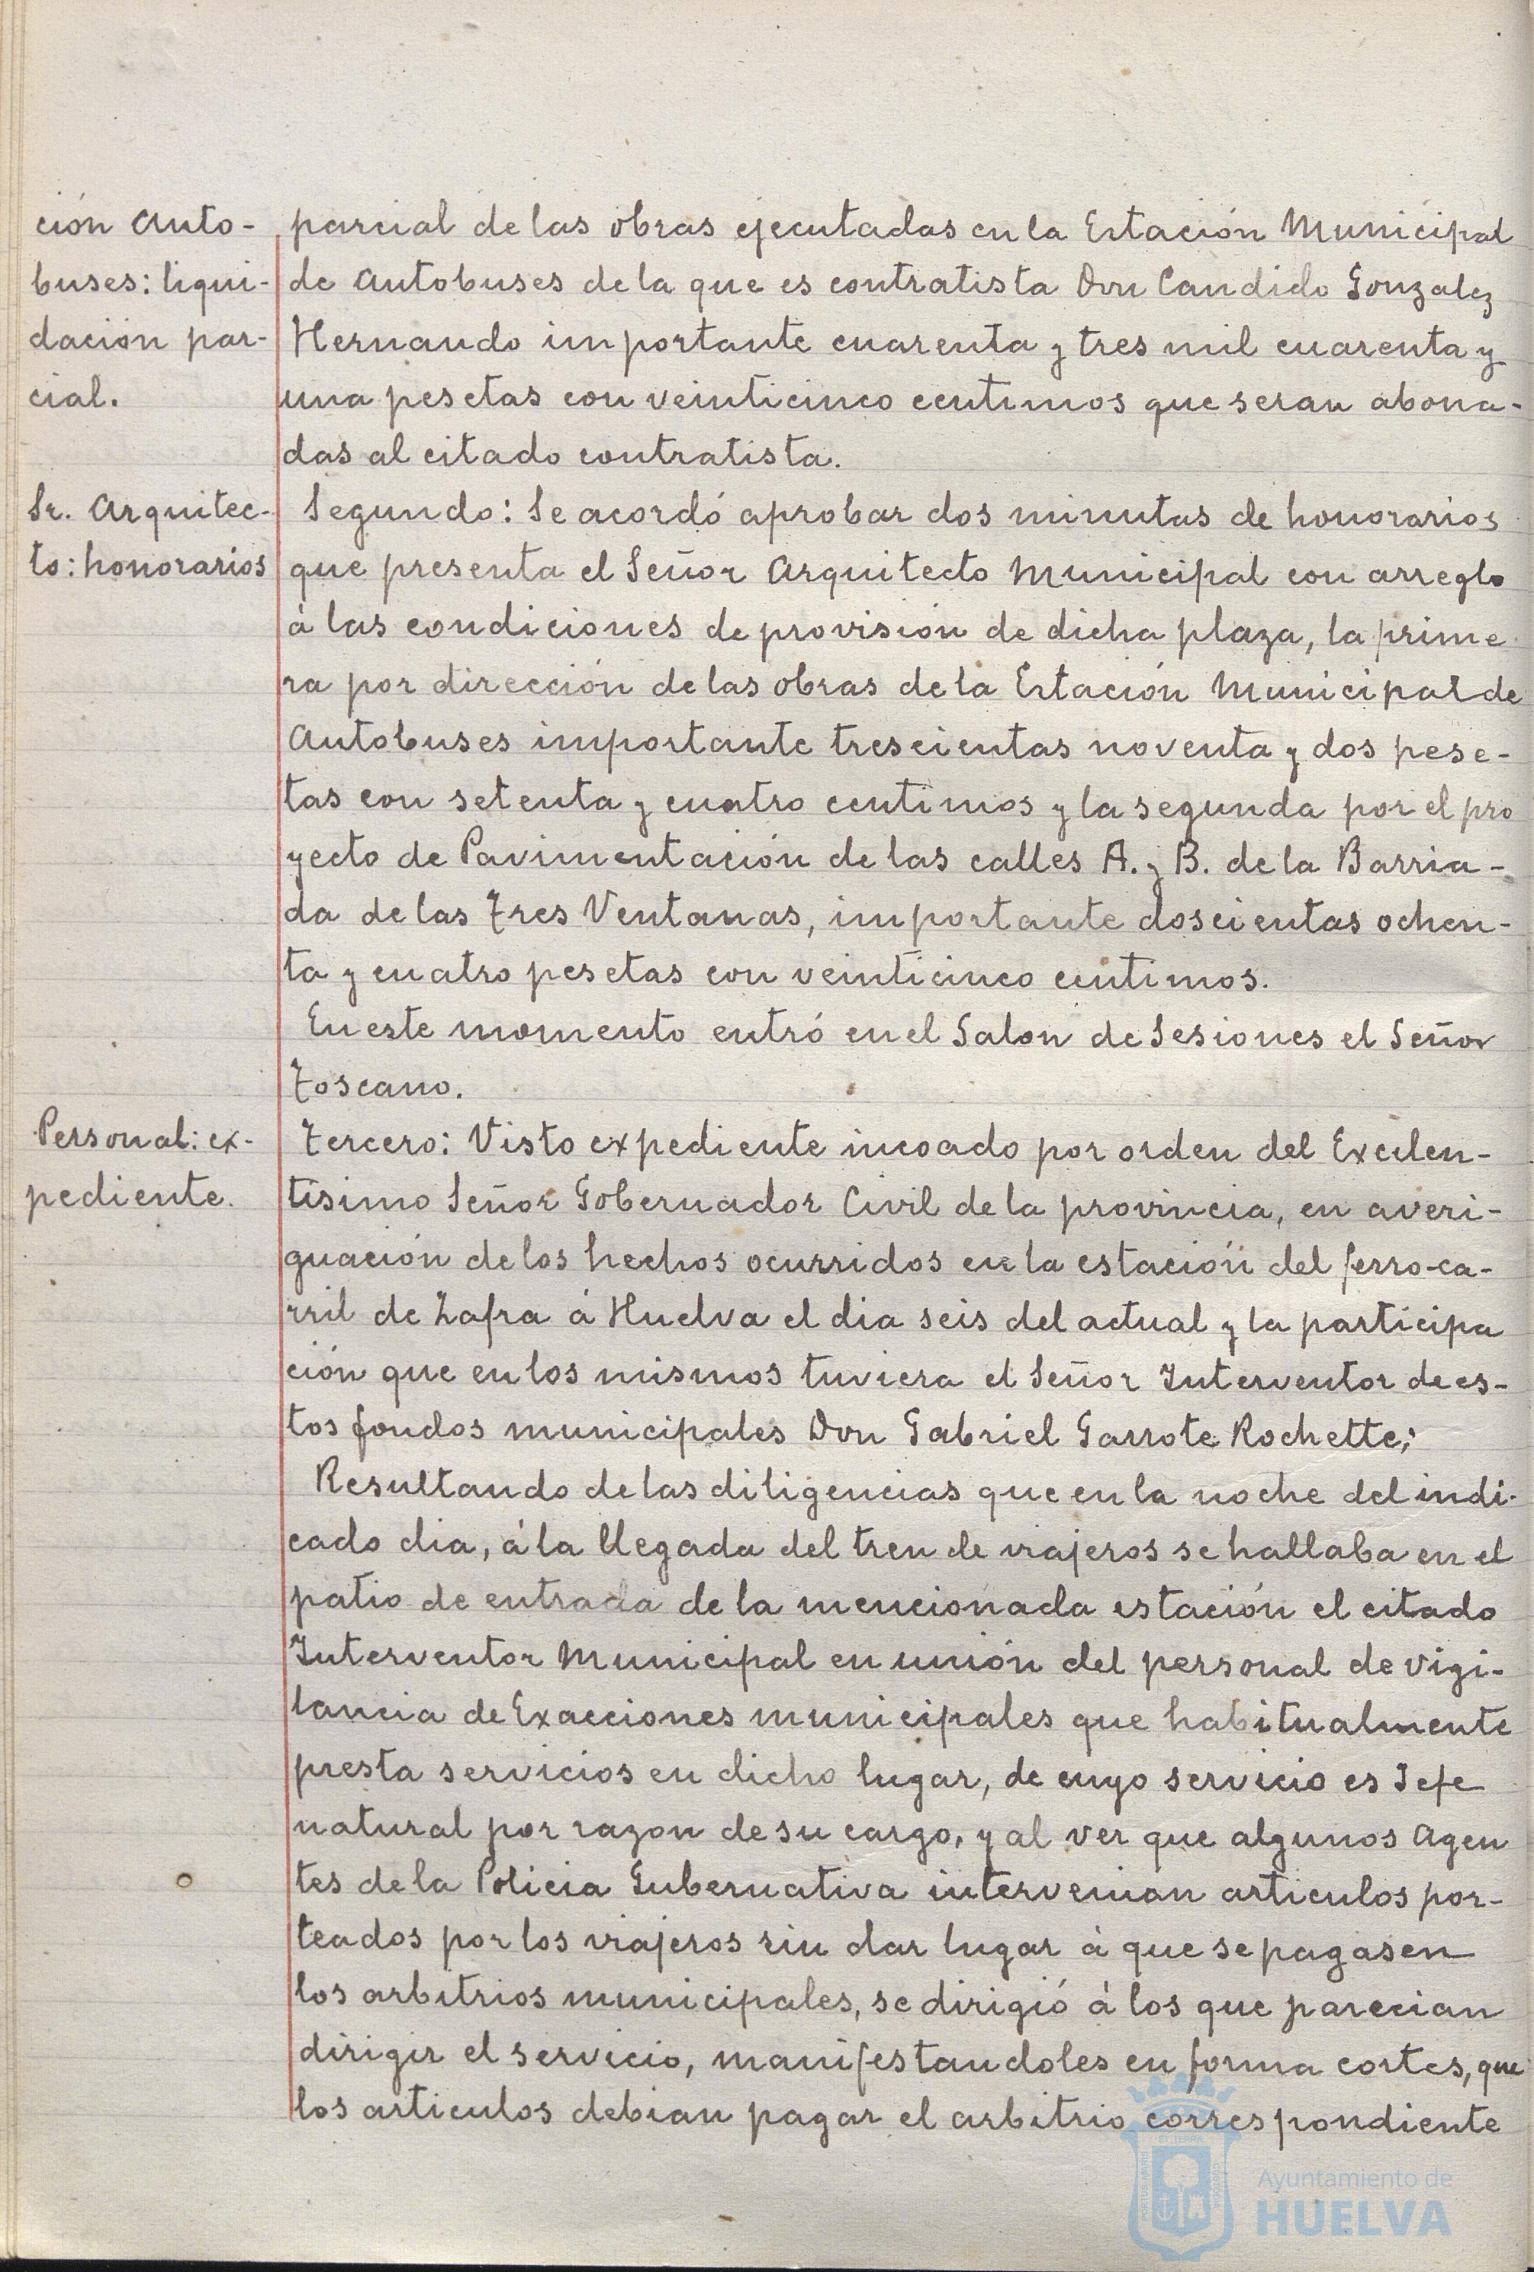 ción Auto-
buses: liqui-
dación par-
cial.
parcial de las obras ejecutadas en la Estación Municipal
de Autobuses de la que es contratista Don Candido Gonzalez
Hernando importante cuarenta y tres mil cuarenta y
una pesetas con veinticinco centimos que seran abona-
das al citado contratista.
Sr. Arquitec-
to: honorarios
Segundo: Se acordó aprobar dos minutas de honorarios
que presenta el Señor Arquitecto Municipal con arreglo
á las condiciones de provisión de dicha plaza, la prime-
ra por dirección de las obras de la Estación Municipal de
Autobuses importante trescientas noventa y dos pese-
tas con setenta y cuatro centimos y la segunda por el pro
yecto de Pavimentación de las calles A. y B. de la Barria-
da de las Tres Ventanas, importante doscientas ochen-
ta y cuatro pesetas con veinticinco centimos.
En este momento entró en el Salon de Sesiones el Señor
Toscano.
Personal: ex-
pediente.
Tercero: Visto expediente incoado por orden del Excelen-
tísimo Señor Gobernador Civil de la provincia, en averi-
guación de los hechos ocurridos en la estación del ferro-ca-
rril de Zafra á Huelva el dia seis del actual y la participa
ción que en los mismos tuviera el Señor Interventor de es-
tos fondos municipales Don Gabriel Garrote Rochette;
Resultando de las diligencias que en la noche del indi-
cado dia, á la llegada del tren de viajeros se hallaba en el
patio de entrada de la mencionada estación el citado
Interventor Municipal en unión del personal de vigi-
lancia de Exacciones municipales que habitualmente
presta servicios en dicho lugar, de cuyo servicio es Jefe
natural por razon de su cargo, y al ver que algunos Agen
tes de la Policia Gubernativa intervenian articulos por-
teados por los viajeros sin dar lugar á que se pagasen
los arbitrios municipales, se dirigió á los que parecian
dirigir el servicio, manifestandoles en forma cortes, que
los articulos debian pagar el arbitrio correspondiente
Ayuntamiento de
HUELVA